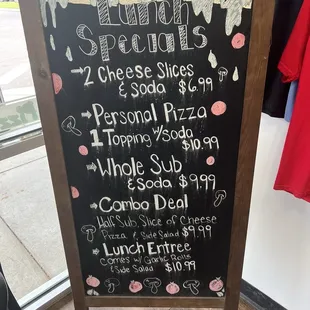 Lunch
Specials
2 Cheese Slices
& Soda $6.99
Personal Pizza
1 Topping w/Soda
$10.99
Whole Sub
& Soda $9.99
Combo Deal
Half Sub, Slice of Cheese
Pizza & Side Salad $9.99
Lunch Entree
Comes w/ Garlic Rolls
& Side Salad $10.99